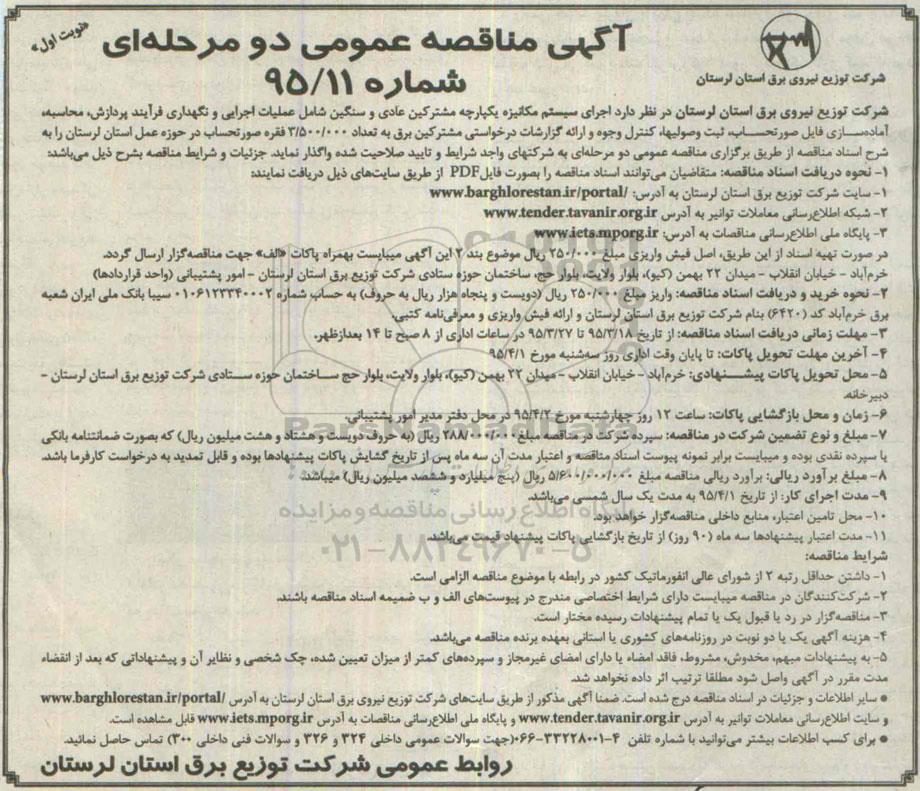 «نوبت اول»
آگهی مناقصه عمومی دو مرحله‌ای
شماره ۹۵/۱۱
شرکت توزیع نیروی برق استان لرستان
شرکت توزیع نیروی برق استان لرستان در نظر دارد اجرای سیستم مکانیزه یکپارچه مشترکین عادی و سنگین شامل عملیات اجرایی و نگهداری فرآیند پردازش، محاسبه،
آماده‌سازی فایل صورتحساب، ثبت وصولیها، کنترل وجوه و ارائه گزارشات درخواستی مشترکین برق به تعداد ۳/۵۰۰/۰۰۰ فقره صورتحساب در حوزه عمل استان لرستان را به
شرح اسناد مناقصه از طریق برگزاری مناقصه عمومی دو مرحله‌ای به شرکتهای واجد شرایط و تایید صلاحیت شده واگذار نماید. جزئیات و شرایط مناقصه بشرح ذیل می‌باشد:
۱- نحوه دریافت اسناد مناقصه: متقاضیان می‌توانند اسناد مناقصه را بصورت فایل PDF از طریق سایت‌های ذیل دریافت نمایند:
۱- سایت شرکت توزیع برق استان لرستان به آدرس: www.barghlorestan.ir/portal/
۲- شبکه اطلاع‌رسانی معاملات توانیر به آدرس www.tender.tavanir.org.ir
۳- پایگاه ملی اطلاع‌رسانی مناقصات به آدرس: www.iets.mporg.ir
در صورت تهیه اسناد از این طریق، اصل فیش واریزی مبلغ ۲۵۰/۰۰۰ ریال موضوع بند ۲ این آگهی میبایست بهمراه پاکات «الف» جهت مناقصه‌گزار ارسال گردد.
خرم‌آباد - خیابان انقلاب - میدان ۲۲ بهمن (کیو)، بلوار ولایت، بلوار حج، ساختمان حوزه ستادی شرکت توزیع برق استان لرستان - امور پشتیبانی (واحد قراردادها)
۲- نحوه خرید و دریافت اسناد مناقصه: واریز مبلغ ۲۵۰/۰۰۰ ریال (دویست و پنجاه هزار ریال به حروف) به حساب شماره ۰۱۰۶۱۲۳۳۴۰۰۰۲ سیبا بانک ملی ایران شعبه
برق خرم‌آباد کد (۶۴۲۰) بنام شرکت توزیع برق استان لرستان و ارائه فیش واریزی و معرفی‌نامه کتبی.
۳- مهلت زمانی دریافت اسناد مناقصه: از تاریخ ۹۵/۳/۱۸ تا ۹۵/۳/۲۷ در ساعات اداری از ۸ صبح تا ۱۴ بعدازظهر.
۴- آخرین مهلت تحویل پاکات: تا پایان وقت اداری روز سه‌شنبه مورخ ۹۵/۴/۱
۵- محل تحویل پاکات پیشنهادی: خرم‌آباد - خیابان انقلاب - میدان ۲۲ بهمن (کیو)، بلوار ولایت، بلوار حج ساختمان حوزه ستادی شرکت توزیع برق استان لرستان -
دبیرخانه.
۶- زمان و محل بازگشایی پاکات: ساعت ۱۲ روز چهارشنبه مورخ ۹۵/۴/۲ در محل دفتر مدیر امور پشتیبانی.
۷- مبلغ و نوع تضمین شرکت در مناقصه: سپرده شرکت در مناقصه مبلغ ۲۸۸/۰۰۰/۰۰۰ ریال (به حروف دویست و هشتاد و هشت میلیون ریال) که بصورت ضمانتنامه بانکی
یا سپرده نقدی بوده و میبایست برابر نمونه پیوست اسناد مناقصه و اعتبار مدت آن سه ماه پس از تاریخ گشایش پاکات پیشنهادها بوده و قابل تمدید به درخواست کارفرما باشد.
۸- مبلغ برآورد ریالی: برآورد ریالی مناقصه مبلغ ۵/۶۰۰/۰۰۰/۰۰۰ ریال (پنج میلیارد و ششصد میلیون ریال) میباشد.
۹- مدت اجرای کار: از تاریخ ۹۵/۴/۱ به مدت یک سال شمسی می‌باشد.
۱۰- محل تامین اعتبار، منابع داخلی مناقصه‌گزار خواهد بود.
۱۱- مدت اعتبار پیشنهادها سه ماه (۹۰ روز) از تاریخ بازگشایی پاکات پیشنهاد قیمت می‌باشد.
شرایط مناقصه:
۱- داشتن حداقل رتبه ۲ از شورای عالی انفورماتیک کشور در رابطه با موضوع مناقصه الزامی است.
۲- شرکت‌کنندگان در مناقصه میبایست دارای شرایط اختصاصی مندرج در پیوست‌های الف و ب ضمیمه اسناد مناقصه باشند.
۳- مناقصه‌گزار در رد یا قبول یک یا تمام پیشنهادات رسیده مختار است.
۴- هزینه آگهی یک یا دو نوبت در روزنامه‌های کشوری یا استانی بعهده برنده مناقصه می‌باشد.
۵- به پیشنهادات مبهم، مخدوش، مشروط، فاقد امضاء یا دارای امضای غیرمجاز و سپرده‌های کمتر از میزان تعیین شده، چک شخصی و نظایر آن و پیشنهاداتی که بعد از انقضاء
مدت مقرر در آگهی واصل شود مطلقا ترتیب اثر داده نخواهد شد.
● سایر اطلاعات و جزئیات در اسناد مناقصه درج شده است. ضمنا آگهی مذکور از طریق سایت‌های شرکت توزیع نیروی برق استان لرستان به آدرس www.barghlorestan.ir/portal/
و سایت اطلاع‌رسانی معاملات توانیر به آدرس www.tender.tavanir.org.ir و پایگاه ملی اطلاع‌رسانی مناقصات به آدرس www.iets.mporg.ir قابل مشاهده است.
● برای کسب اطلاعات بیشتر می‌توانید با شماره تلفن ۴-۰۶۶-۳۳۲۲۸۰۰۱ (جهت سوالات عمومی داخلی ۳۲۴ و ۳۲۶ و سوالات فنی داخلی ۳۰۰) تماس حاصل نمائید.
روابط عمومی شرکت توزیع برق استان لرستان
ParsNamadData
پایگاه اطلاع رسانی مناقصه و مزایده
۰۲۱-۸۸۳۴۹۶۷۰-۵